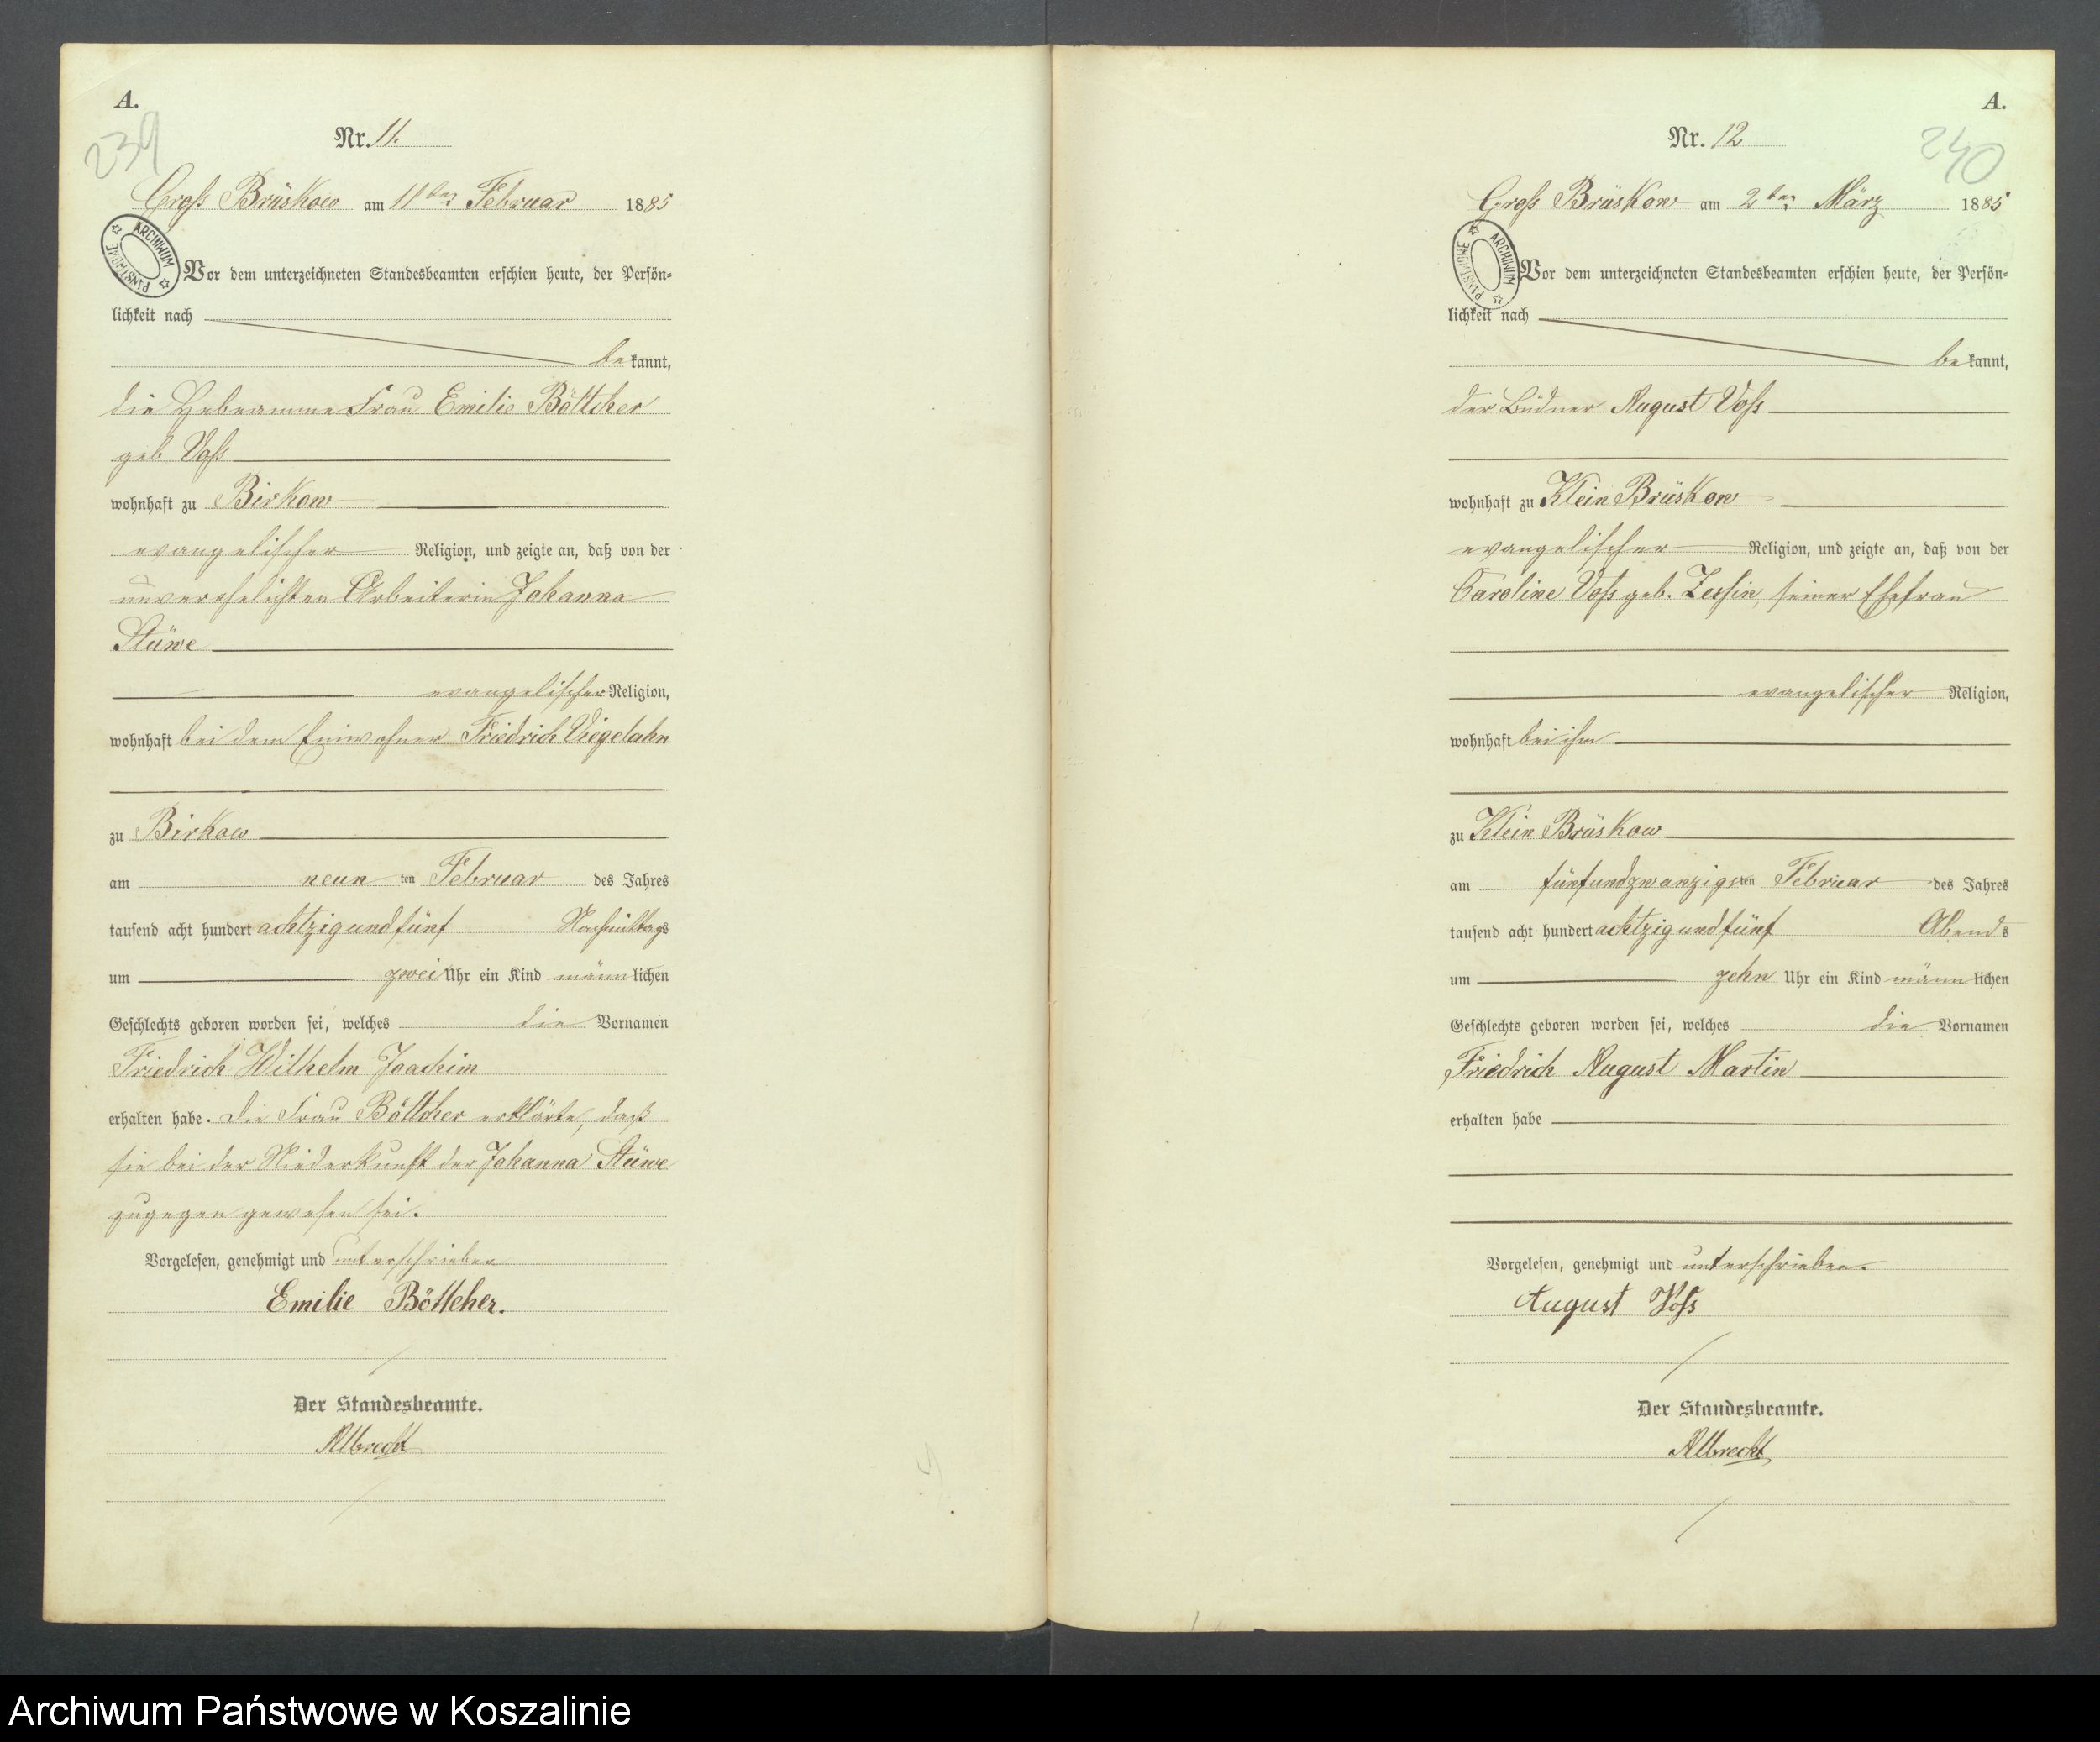 A.
239
Nr. 11.
Groß Brüskow am 11ten Februar 1885
ARCHIWUM PAŃSTWOWE
Vor dem unterzeichneten Standesbeamten erschien heute, der Persön-
lichkeit nach
bekannt,
die Hebeamme Frau Emilie Böttcher
geb Voß
wohnhaft zu Birkow
evangelischer Religion, und zeigte an, daß von der
unverehelichten Arbeiterin Johanna
Stüwe
evangelischer Religion,
wohnhaft bei dem Einwohner Friedrich Viegelahn
zu Birkow
am neunten Februar des Jahres
tausend acht hundert achtzig und fünf Nachmittags
um zwei Uhr ein Kind männlichen
Geschlechts geboren worden sei, welches die Vornamen
Friedrich Wilhelm Joachim
erhalten habe. Die Frau Böttcher erklärte, daß
sie bei der Niederkunft der Johanna Stüwe
zugegen gewesen sei.
Vorgelesen, genehmigt und unterschrieben
Emilie Bötteher.
Der Standesbeamte.
Albrecht
A.
240
Nr. 12
Groß Brüskow am 2ten März 1885
ARCHIWUM PAŃSTWOWE
Vor dem unterzeichneten Standesbeamten erschien heute, der Persön-
lichkeit nach
bekannt,
der Büdner August Voß
wohnhaft zu Klein Brüskow
evangelischer Religion, und zeigte an, daß von der
Caroline Voß geb. Zessin, seiner Ehefrau
evangelischer Religion,
wohnhaft bei ihm
zu Klein Brüskow
am fünfundzwanzigsten Februar des Jahres
tausend acht hundert achtzig und fünf Abends
um zehn Uhr ein Kind männlichen
Geschlechts geboren worden sei, welches die Vornamen
Friedrich August Martin
erhalten habe
Vorgelesen, genehmigt und unterschrieben.
August Voß
Der Standesbeamte.
Albrecht
Archiwum Państwowe w Koszalinie